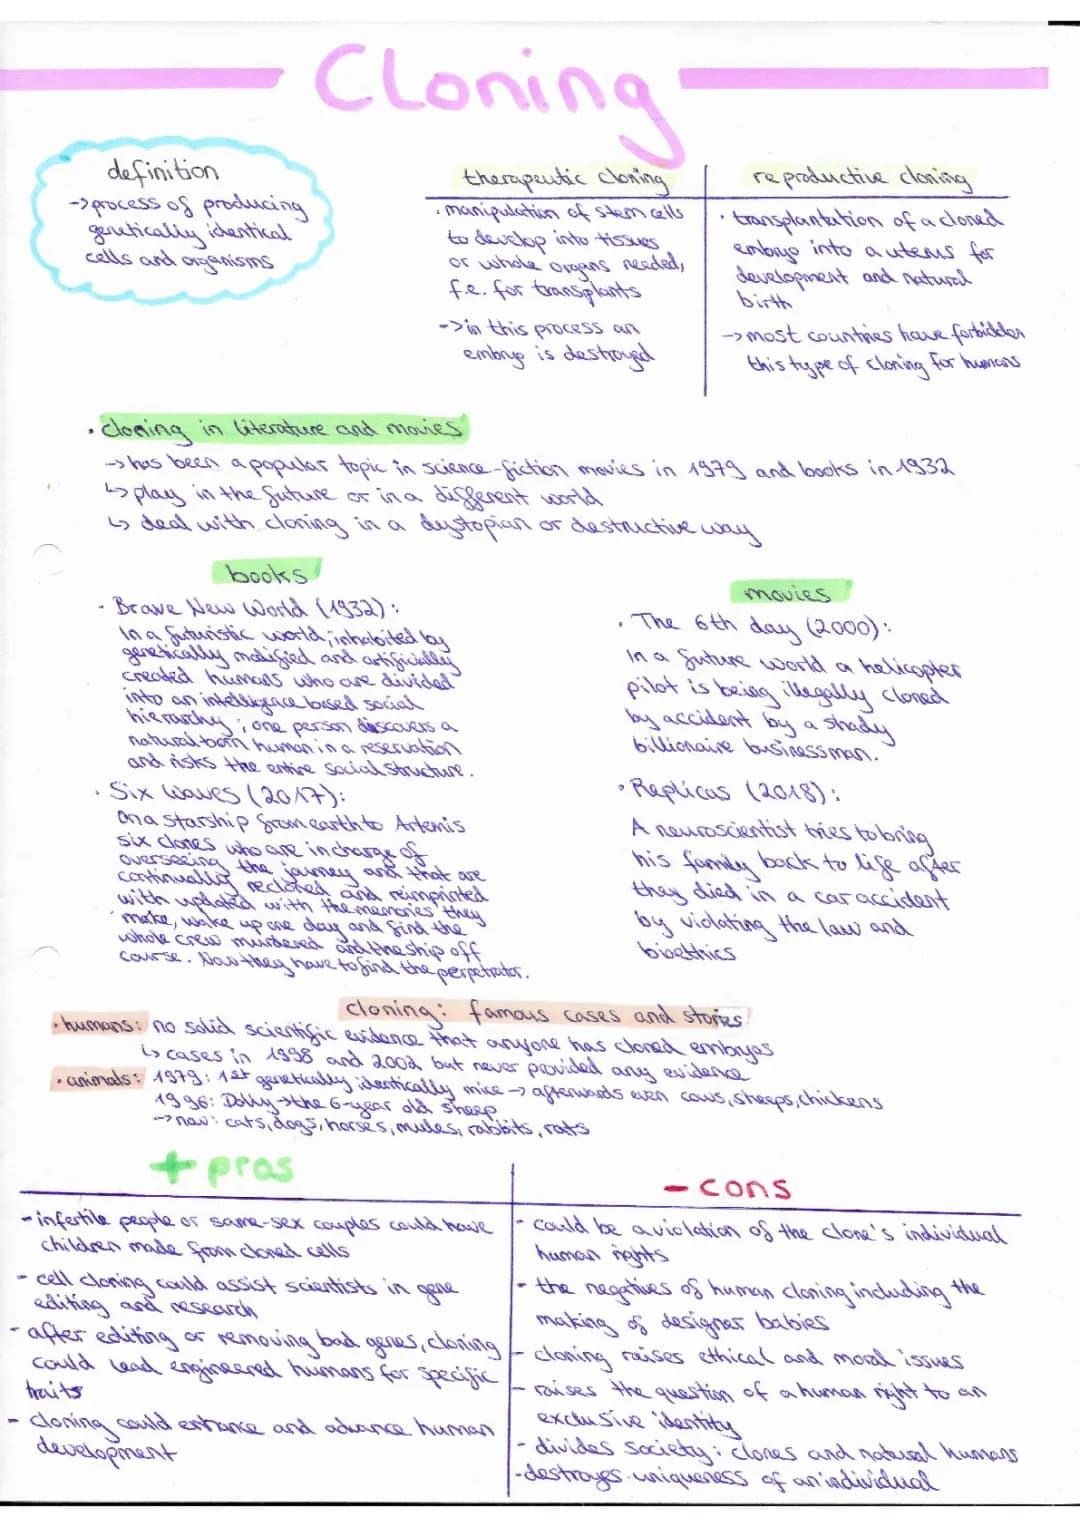 Cloning
definition
->process of producing
genetically identical
cells and organisms
therapeutic cloning
· manipulation of stem cells
to develop into tissues
or whole organs needed,
f.e. for transplants
->in this process an
embryo is destroyed
reproductive cloning
· transplantation of a cloned
embryo into a uterus for
development and natural
birth
->most countries have forbidden
this type of cloning for humans
· cloning in literature and movies
-> has been a popular topic in science-fiction movies in 1979 and books in 1932
↳ play in the future or in a different world
↳ deal with cloning in a dystopian or destructive way
books
· Brave New World (1932):
In a futuristic world, inhabited by
genetically modified and artificially
created humans who are divided
into an intelligence based social
hierarchy; one person discovers a
natural born human in a reservation
and risks the entire social structure.
· Six Waves (2017):
On a starship from earth to Artemis
six clones who are in charge of
overseeing the journey and that are
continually recloned and reimprinted
with updated with the memories they
make, wake up one day and find the
whole crew murdered and the ship off
course. Now they have to find the perpetrator.
movies
· The 6th day (2000):
In a future world a helicopter
pilot is being illegally cloned
by accident by a shady
billionaire businessman.
· Replicas (2018):
A neuroscientist tries to bring
his family back to life after
they died in a car accident
by violating the law and
bioethics
cloning: famous cases and stories
· humans: no solid scientific evidence that anyone has cloned embryos
↳ cases in 1998 and 2002 but never provided any evidence
· animals: 1979: 1st genetically identically mice -> afterwards even cows, sheeps, chickens
1996: Dolly->the 6-year old sheep
-> now: cats, dogs, horses, mules, rabbits, rats
+ pros
- infertile people or same-sex couples could have
children made from cloned cells
- cell cloning could assist scientists in gene
editing and research
- after editing or removing bad genes, cloning
could lead engineered humans for specific
traits
- cloning could enhance and advance human
development
- cons
- could be a violation of the clone's individual
human rights
- the negatives of human cloning including the
making of designer babies
- cloning raises ethical and moral issues
- raises the question of a human right to an
exclusive identity
- divides society: clones and natural humans
- destroyes uniqueness of an individual